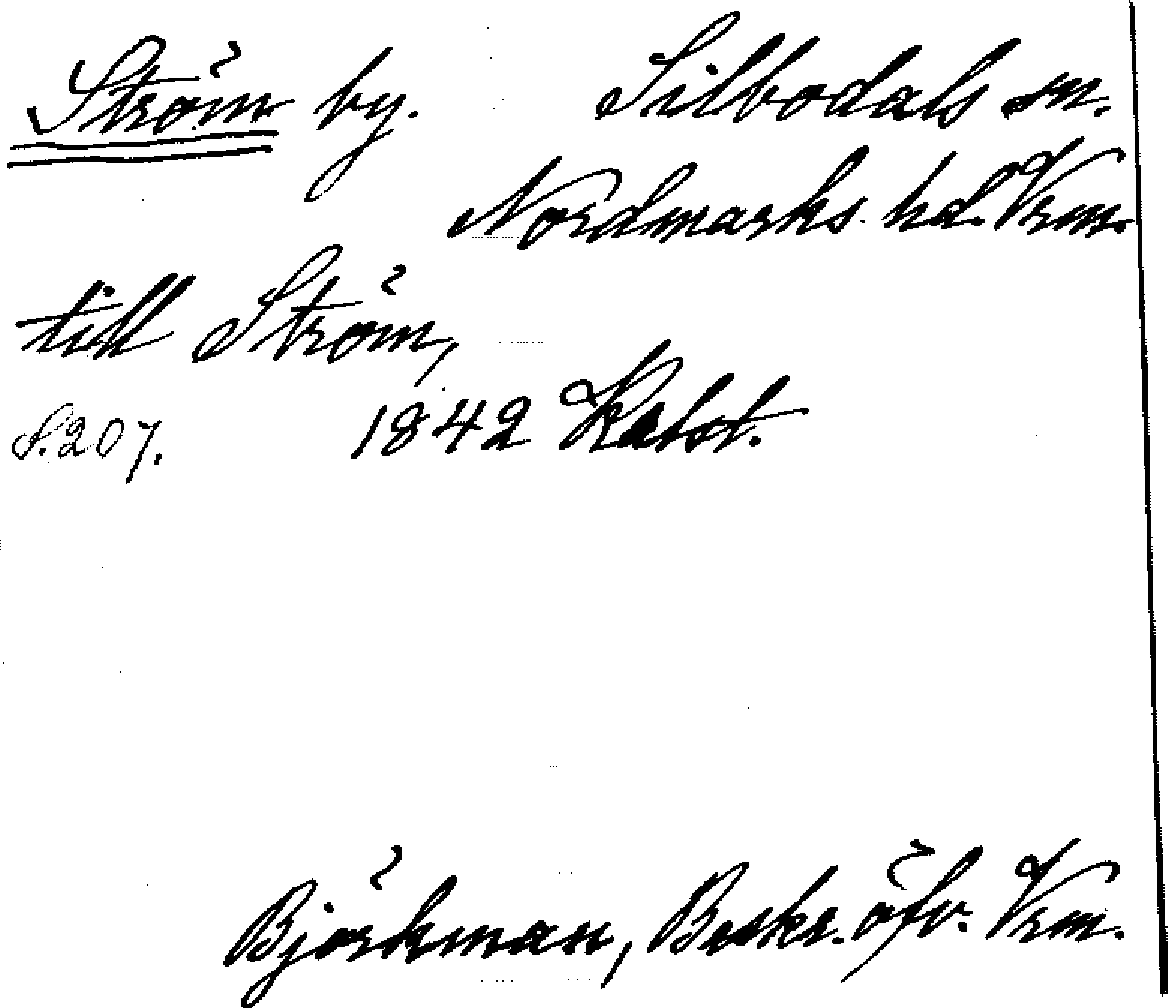 Ström by. Silbodals sn.
Nordmarks hd. Vrm.
till Ström,
S. 207. 1842 Katst.
Björkman, Beskr. öfv. Vrm.